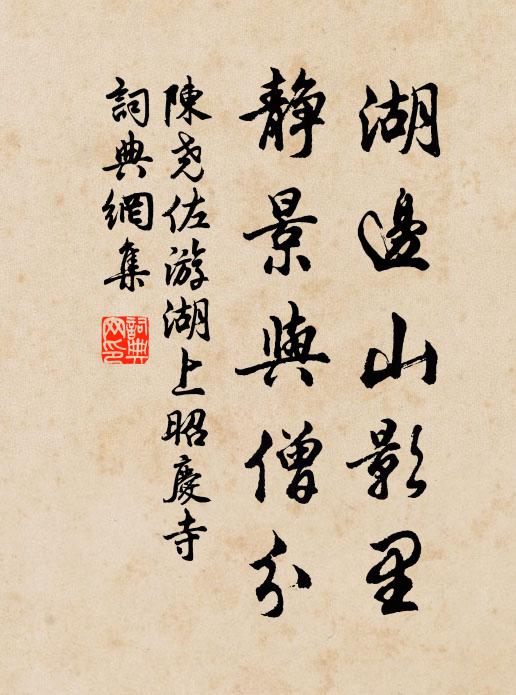 湖邊山影里
靜景與僧分
陳堯佐游湖上昭慶寺
詞典網集
詞典网印